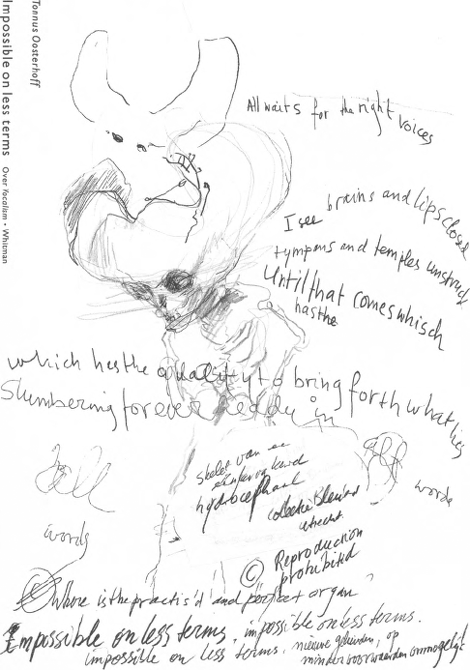 Tonnus Oosterhoff
Impossible on less terms Over Vocalism - Whitman
All waits for the right voices
I see brains and lips closed
tympans and temples unstruck
Until that comes whisch
has the
which has the quality to bring forth what lies
Slumbering forever ready in
all
words
words
skelet van een
eenjarig kind
hydrocephaal
collectie Bleuland
Utrecht
© Reproduction
prohibitid
Where is the practis'd and perfect organ?
Impossible on less terms, impossible on less terms.
impossible on less terms. nieuwe geluiden, op
minder voorwaarden onmogelijk